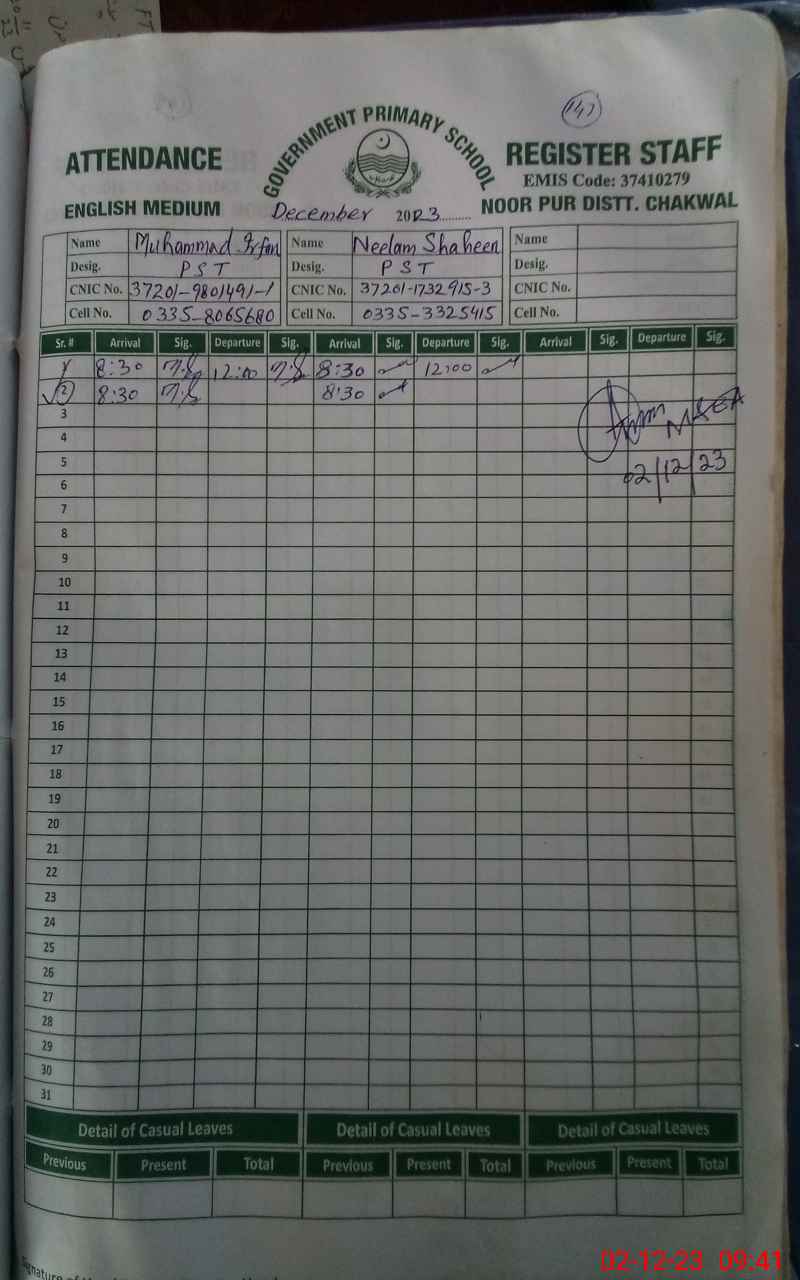 (147)
GOVERNMENT PRIMARY SCHOOL
ATTENDANCE REGISTER STAFF
EMIS Code: 37410279
ENGLISH MEDIUM December 2023......... NOOR PUR DISTT. CHAKWAL
Name Muhammad Irfan Name Neelam Shaheen Name
Desig. PST Desig. PST Desig.
CNIC No. 37201-9801491-1 CNIC No. 37201-1732915-3 CNIC No.
Cell No. 0335-8065680 Cell No. 0335-3325415 Cell No.
Sr. # Arrival Sig. Departure Sig. Arrival Sig. Departure Sig. Arrival Sig. Departure Sig.
1 8:30 12:00 8:30 12:00
2 8:30 8:30
3
4 MEA
5
6 02/12/23
7
8
9
10
11
12
13
14
15
16
17
18
19
20
21
22
23
24
25
26
27
28
29
30
31
Detail of Casual Leaves Detail of Casual Leaves Detail of Casual Leaves
Previous Present Total Previous Present Total Previous Present Total
Signature of
02-12-23 09:41